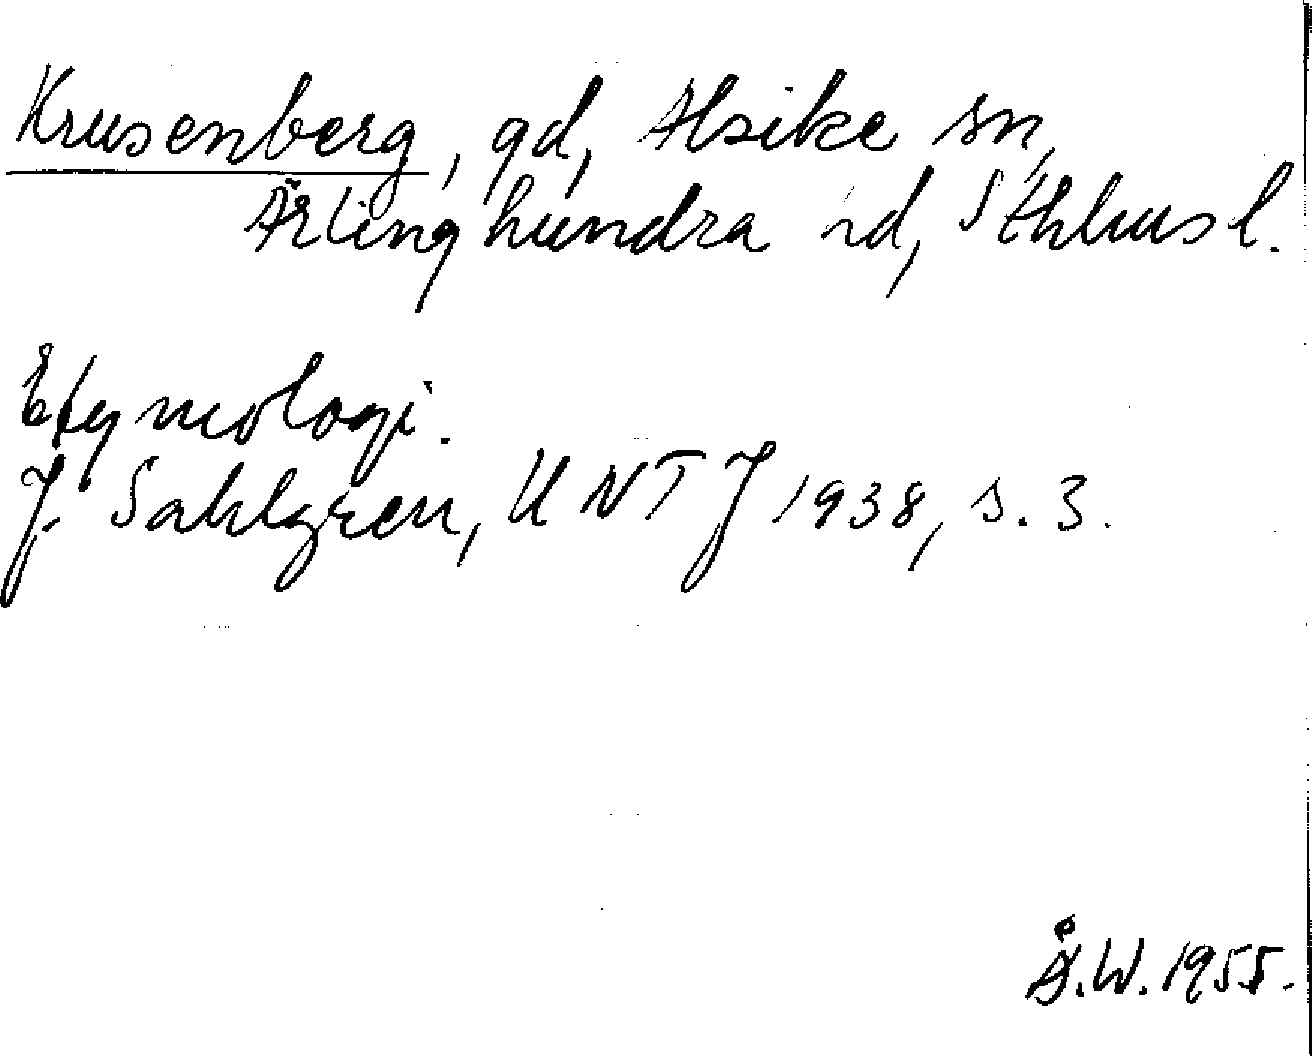 Krusenberg, gd, Alsike sn,
Ärlinghundra hd, Sthlms l.
Etymologi.
J. Sahlgren, UNTJ 1938, s. 3.
Å.W. 1955.